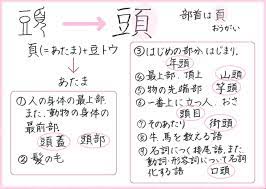 頭 → 頭
部首は頁
おうがい
頁(=あたま)+豆トウ
↓
あたま
①人の身体の最上部。
また、動物の身体の
最前部。
頭蓋 頭部
②髪の毛
③はじめの部分、はじまり。
年頭
④最上部、頂上 山頭
⑤物の先端部 芋頭
⑥一番上に立つ人、おさ
頭目
⑦そのあたり 街頭
⑧牛、馬を数える語
④名詞につく接尾語。また、
動詞・形容詞について名詞
化する語 口頭